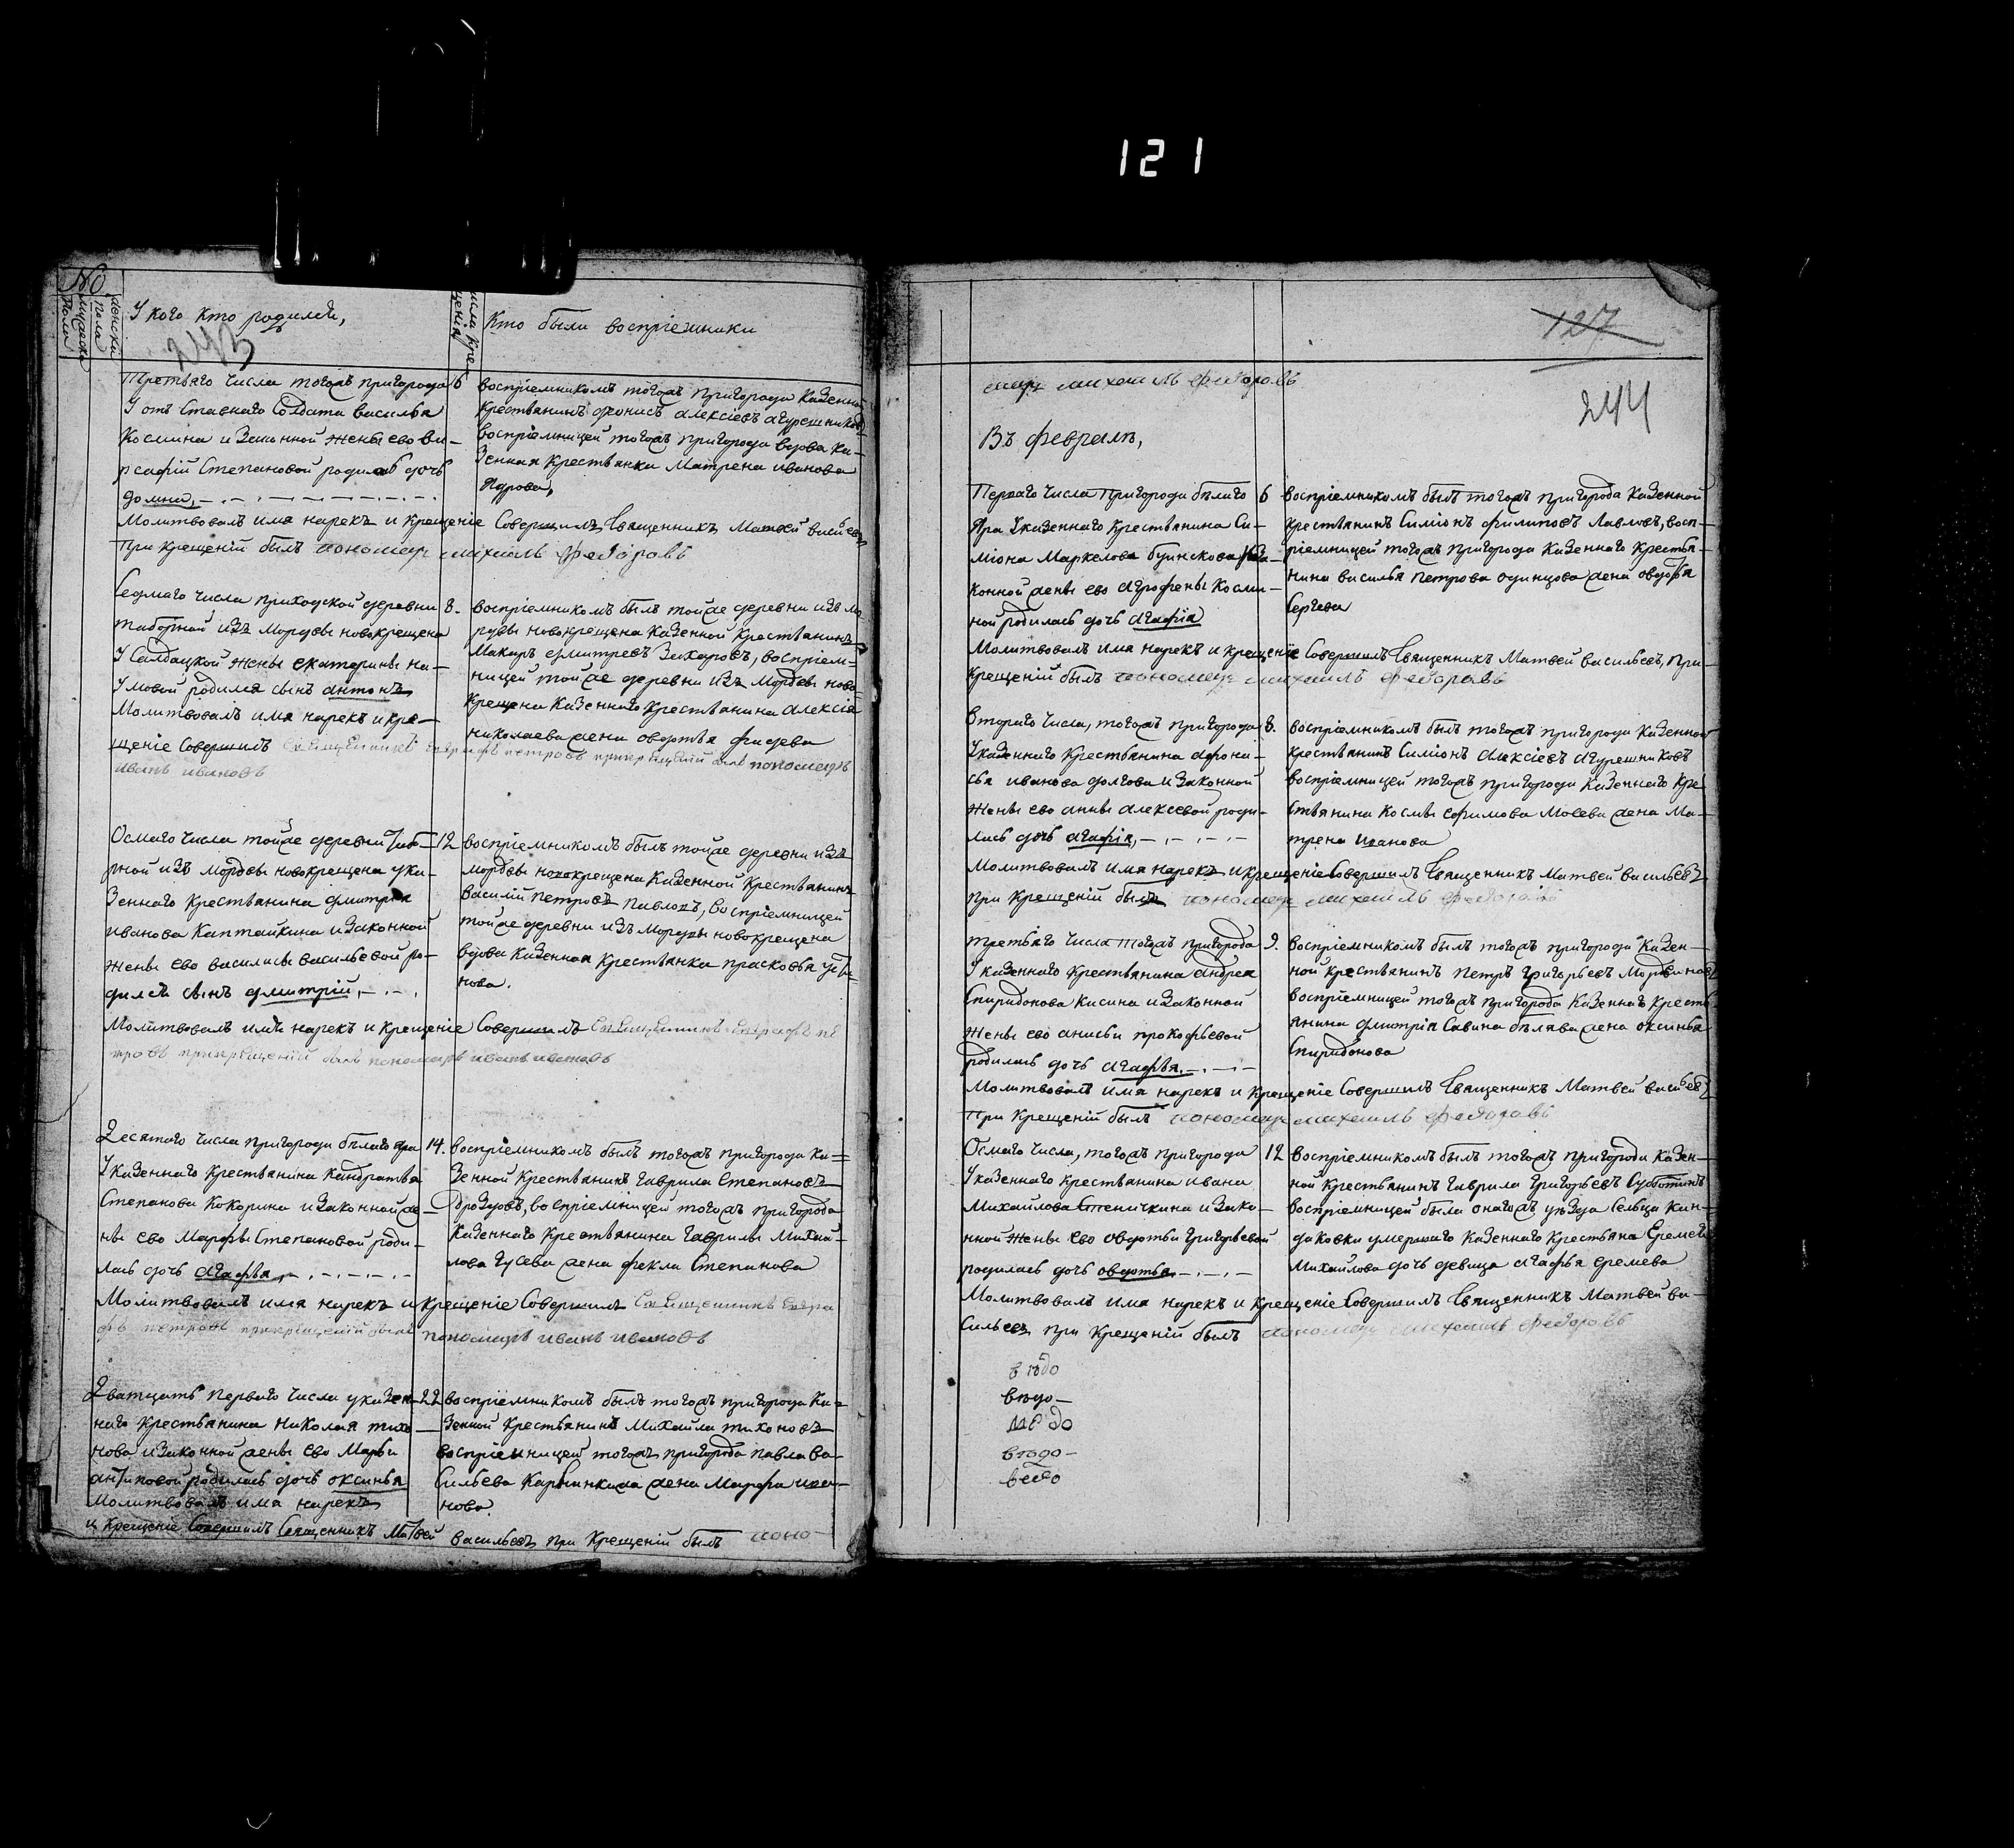 121
№
мужеска пола
женска пола
У кого кто родился,
числа крещенія
Кто были воспріемники
243
Третьяго числа тогожъ пригорода
У отъ ставнаго солдата василья
Космина и законной жены ево ви-
рсафіи Степановой родилась дочь
домна,
6
воспріемникомъ тогожъ пригорода казенной
крестьянинъ фонисъ алексіевъ агурешниковъ
воспріемницей тогожъ пригорода вдова ка-
зенная крестьянка Матрена иванова
Молитвовалъ имя нарекъ и крещеніе Совершилъ Священникъ Матвей васильевъ
При крещеніи былъ пономарь михаилъ федоровъ
Седмаго числа приходской деревни
таборной изъ Мордвы новокрещена
У Салдацкой жены екатерины на-
умовой родился сынъ антонъ
Молитвовалъ имя нарекъ и кре-
8.
воспріемникомъ былъ тойже деревни изъ мо-
рдвы новокрещена казенной крестьянинъ
Макаръ дмитревъ Захаровъ, воспріем-
ницей тойже деревни изъ Мордвы ново-
крещена казеннаго крестьянина Алексія
николаева жена овдотья фадева
щеніе Совершилъ Священникъ евграфъ петровъ прикрещеніи былъ пономарь
иванъ ивановъ
Осмаго числа тойже деревни Табо-
рной изъ мордвы новокрещена ука-
зеннаго крестьянина дмитрія
иванова Каптайкина и законной
жены ево василисы васильевой ро-
дился сынъ дмитрій,
12
воспріемникомъ былъ тойже деревни изъ
мордвы новокрещена казенной крестьянинъ
василій петровъ павловъ, воспріемницей
тойже деревни изъ Мордвы новокрещена
вдова казенная крестьянка прасковья усти-
нова.
Молитвовалъ имя нарекъ и крещеніе Совершилъ Священникъ евграфъ пе
тровъ прикрещеніи былъ пономарь иванъ ивановъ
Десятаго числа пригорода белаго яра
Указеннаго крестьянина Кандратья
Степанова Кокорина и законной же-
ны ево Марфы Степановой роди-
лась дочь агафья
14.
воспріемникомъ былъ тогожъ пригорода ка-
зенной крестьянинъ Гаврила Степановъ
Дроздовъ, воспріемницей тогожъ пригорода
казеннаго крестьянина Гаврилы Михай-
лова Гусева жена фекла Степанова
Молитвовалъ имя нарекъ и крещеніе Совершилъ Священникъ евгра
фъ петровъ прикрещеніи былъ пономарь иванъ ивановъ
Дватцать перваго числа указен-
наго крестьянина Николая тихо-
нова и законной жены ево Марьи
антиповой родилась дочь оксинья
Молитвовалъ имя нарекъ
22
воспріемникомъ былъ тогожъ пригорода ка-
зенной крестьянинъ Михайла тихоновъ
воспріемницей тогожъ пригорода павла ва-
сильева жена Марфа ива-
нова.
и крещеніе Совершилъ Священникъ Матвей васильевъ при крещеніи былъ поно-
127
244
марь михаилъ федоровъ
Въ февралѣ,
Перваго числа Пригорода бѣлаго
Яра Указеннаго крестьянина Си-
міона Маркелова буинскова иза-
конной жены ево агрофены Косми-
ной родилась дочь агафія
6
воспріемникомъ былъ тогожъ пригорода казенной
крестьянинъ Симіонъ филиповъ Павловъ, восп-
ріемницей тогожъ пригорода казеннаго крестья-
нина василья петрова одинцова жена овдотья
Сергева
Молитвовалъ имя нарекъ и крещеніе Совершилъ Священникъ Матвей васильевъ, при-
крещеніи былъ пономарь михаилъ федоровъ
Втораго числа, тогожъ пригорода
Указеннаго крестьянина афона-
сья иванова долгова и законной
жены ево анны алексевой роди-
лась дочь агафія,
8.
воспріемникомъ былъ тогожъ пригорода казенной
крестьянинъ Симіонъ Алексіевъ агурешниковъ
воспріемницей тогожъ пригорода казеннаго кре
стьянина Космы ефимова Мосева жена Ма-
трена иванова
Молитвовалъ имя нарекъ и крещеніе Совершилъ Священникъ Матвей васильевъ
при крещеніи былъ пономарь михаилъ федоровъ
третьяго числа тогожъ пригорода
Указеннаго крестьянина андрея
Спиридонова Кисина и законной
жены ево анисьи прокофьевой
родилась дочь агафья.
9.
воспріемникомъ былъ тогожъ пригорода казен-
ной крестьянинъ петръ григорьевъ Мордвиновъ
воспріемницей тогожъ пригорода казеннаго кресть
янина дмитрія Савина бѣлява жена оксинья
Спиридонова
Молитвовалъ имя нарекъ и крещеніе Совершилъ Священникъ Матвей васильевъ
При крещеніи былъ пономарь михаилъ федоровъ
Осмаго числа, тогожъ пригорода
Указеннаго крестьянина ивана
Михайлова Стеничкина и зако-
нной жены ево овдотьи григорьевой
родилась дочь овдотья
12
воспріемникомъ былъ тогожъ пригорода казен-
ной крестьянинъ Гаврила григорьевъ Субботинъ
воспріемницей была онагожъ уѣзда Сельца Кан-
даковки умершаго казеннаго крестьяна Еремея
Михайлова дочь девица агафья еремева
Молитвовалъ имя нарекъ и крещеніе Совершилъ Священникъ Матвей ва-
сильевъ при крещеніи былъ пономарь михаилъ федоровъ